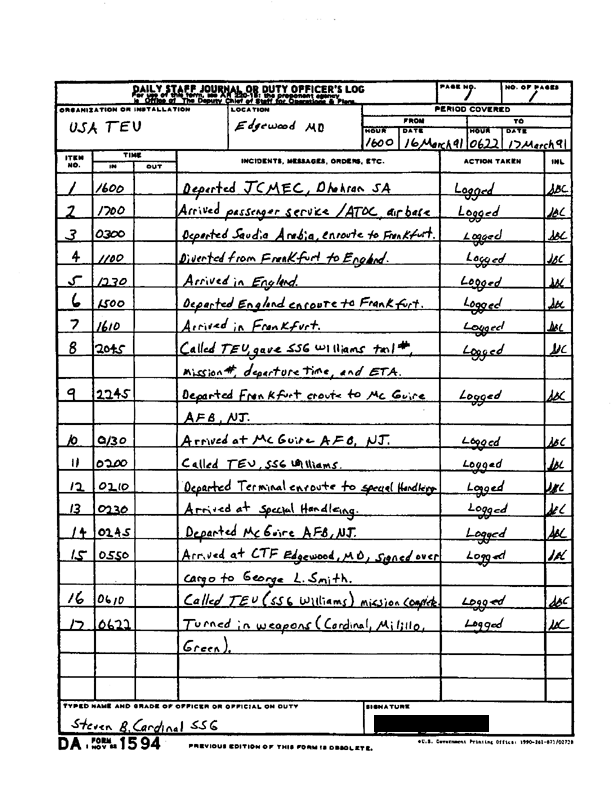 DAILY STAFF JOURNAL OR DUTY OFFICER'S LOG
For use of this form, see AR 220-15; the proponent agency
is Office of The Deputy Chief of Staff for Operations & Plans.
PAGE NO.
1
NO. OF PAGES
1
ORGANIZATION OR INSTALLATION
USA TEU
LOCATION
Edgewood MD
PERIOD COVERED
FROM TO
HOUR DATE HOUR DATE
1600 16 March 91 0622 17 March 91
ITEM NO. TIME IN OUT INCIDENTS, MESSAGES, ORDERS, ETC. ACTION TAKEN INL
1 1600 Departed JCMEC, Dhahran SA Logged SBC
2 1700 Arrived passenger service /ATOC, air base Logged SBC
3 0300 Departed Saudia Arabia, enroute to Frankfurt. Logged SBC
4 1100 Diverted from Frankfurt to England. Logged SBC
5 1230 Arrived in England. Logged SBC
6 1500 Departed England enroute to Frankfurt. Logged SBC
7 1610 Arrived in Frankfurt. Logged SBC
8 2045 Called TEU, gave SSG Williams tail #, Logged SBC
mission #, departure time, and ETA.
9 2245 Departed Frankfurt eroute to Mc Guire Logged SBC
AFB, NJ.
10 0130 Arrived at Mc Guire AFB, NJ. Logged SBC
11 0200 Called TEU, SSG Williams. Logged SBC
12 0210 Departed Terminal enroute to special Handleing Logged SBC
13 0230 Arrived at special Handleing. Logged SBC
14 0245 Departed Mc Guire AFB, NJ. Logged SBC
15 0550 Arrived at CTF Edgewood, MD, signed over Logged SBC
cargo to George L. Smith.
16 0610 Called TEU (SSG Williams) mission complete. Logged SBC
17 0622 Turned in weapons (Cardinal, Milillo, Logged SBC
Green).
TYPED NAME AND GRADE OF OFFICER OR OFFICIAL ON DUTY
Steven B. Cardinal SSG
SIGNATURE
DA FORM 1 NOV 62 1594
PREVIOUS EDITION OF THIS FORM IS OBSOLETE.
U.S. Government Printing Office: 1990-261-871/02728